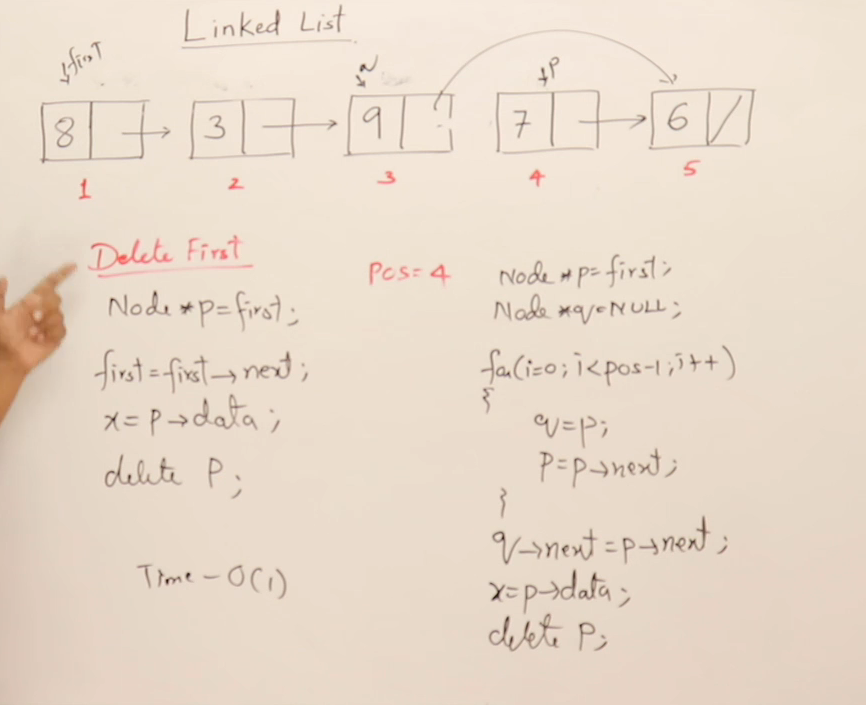 Linked List
first
q
P
8 3 9 7 6
1 2 3 4 5
Delete First
Node *p=first;
first=first→next;
x=p→data;
delete P;
Time – O(1)
Pos=4
Node *p=first;
Node *q=NULL;
for(i=0; i<pos-1; i++)
{
q=p;
P=p→next;
}
q→next=p→next;
x=p→data;
delete P;